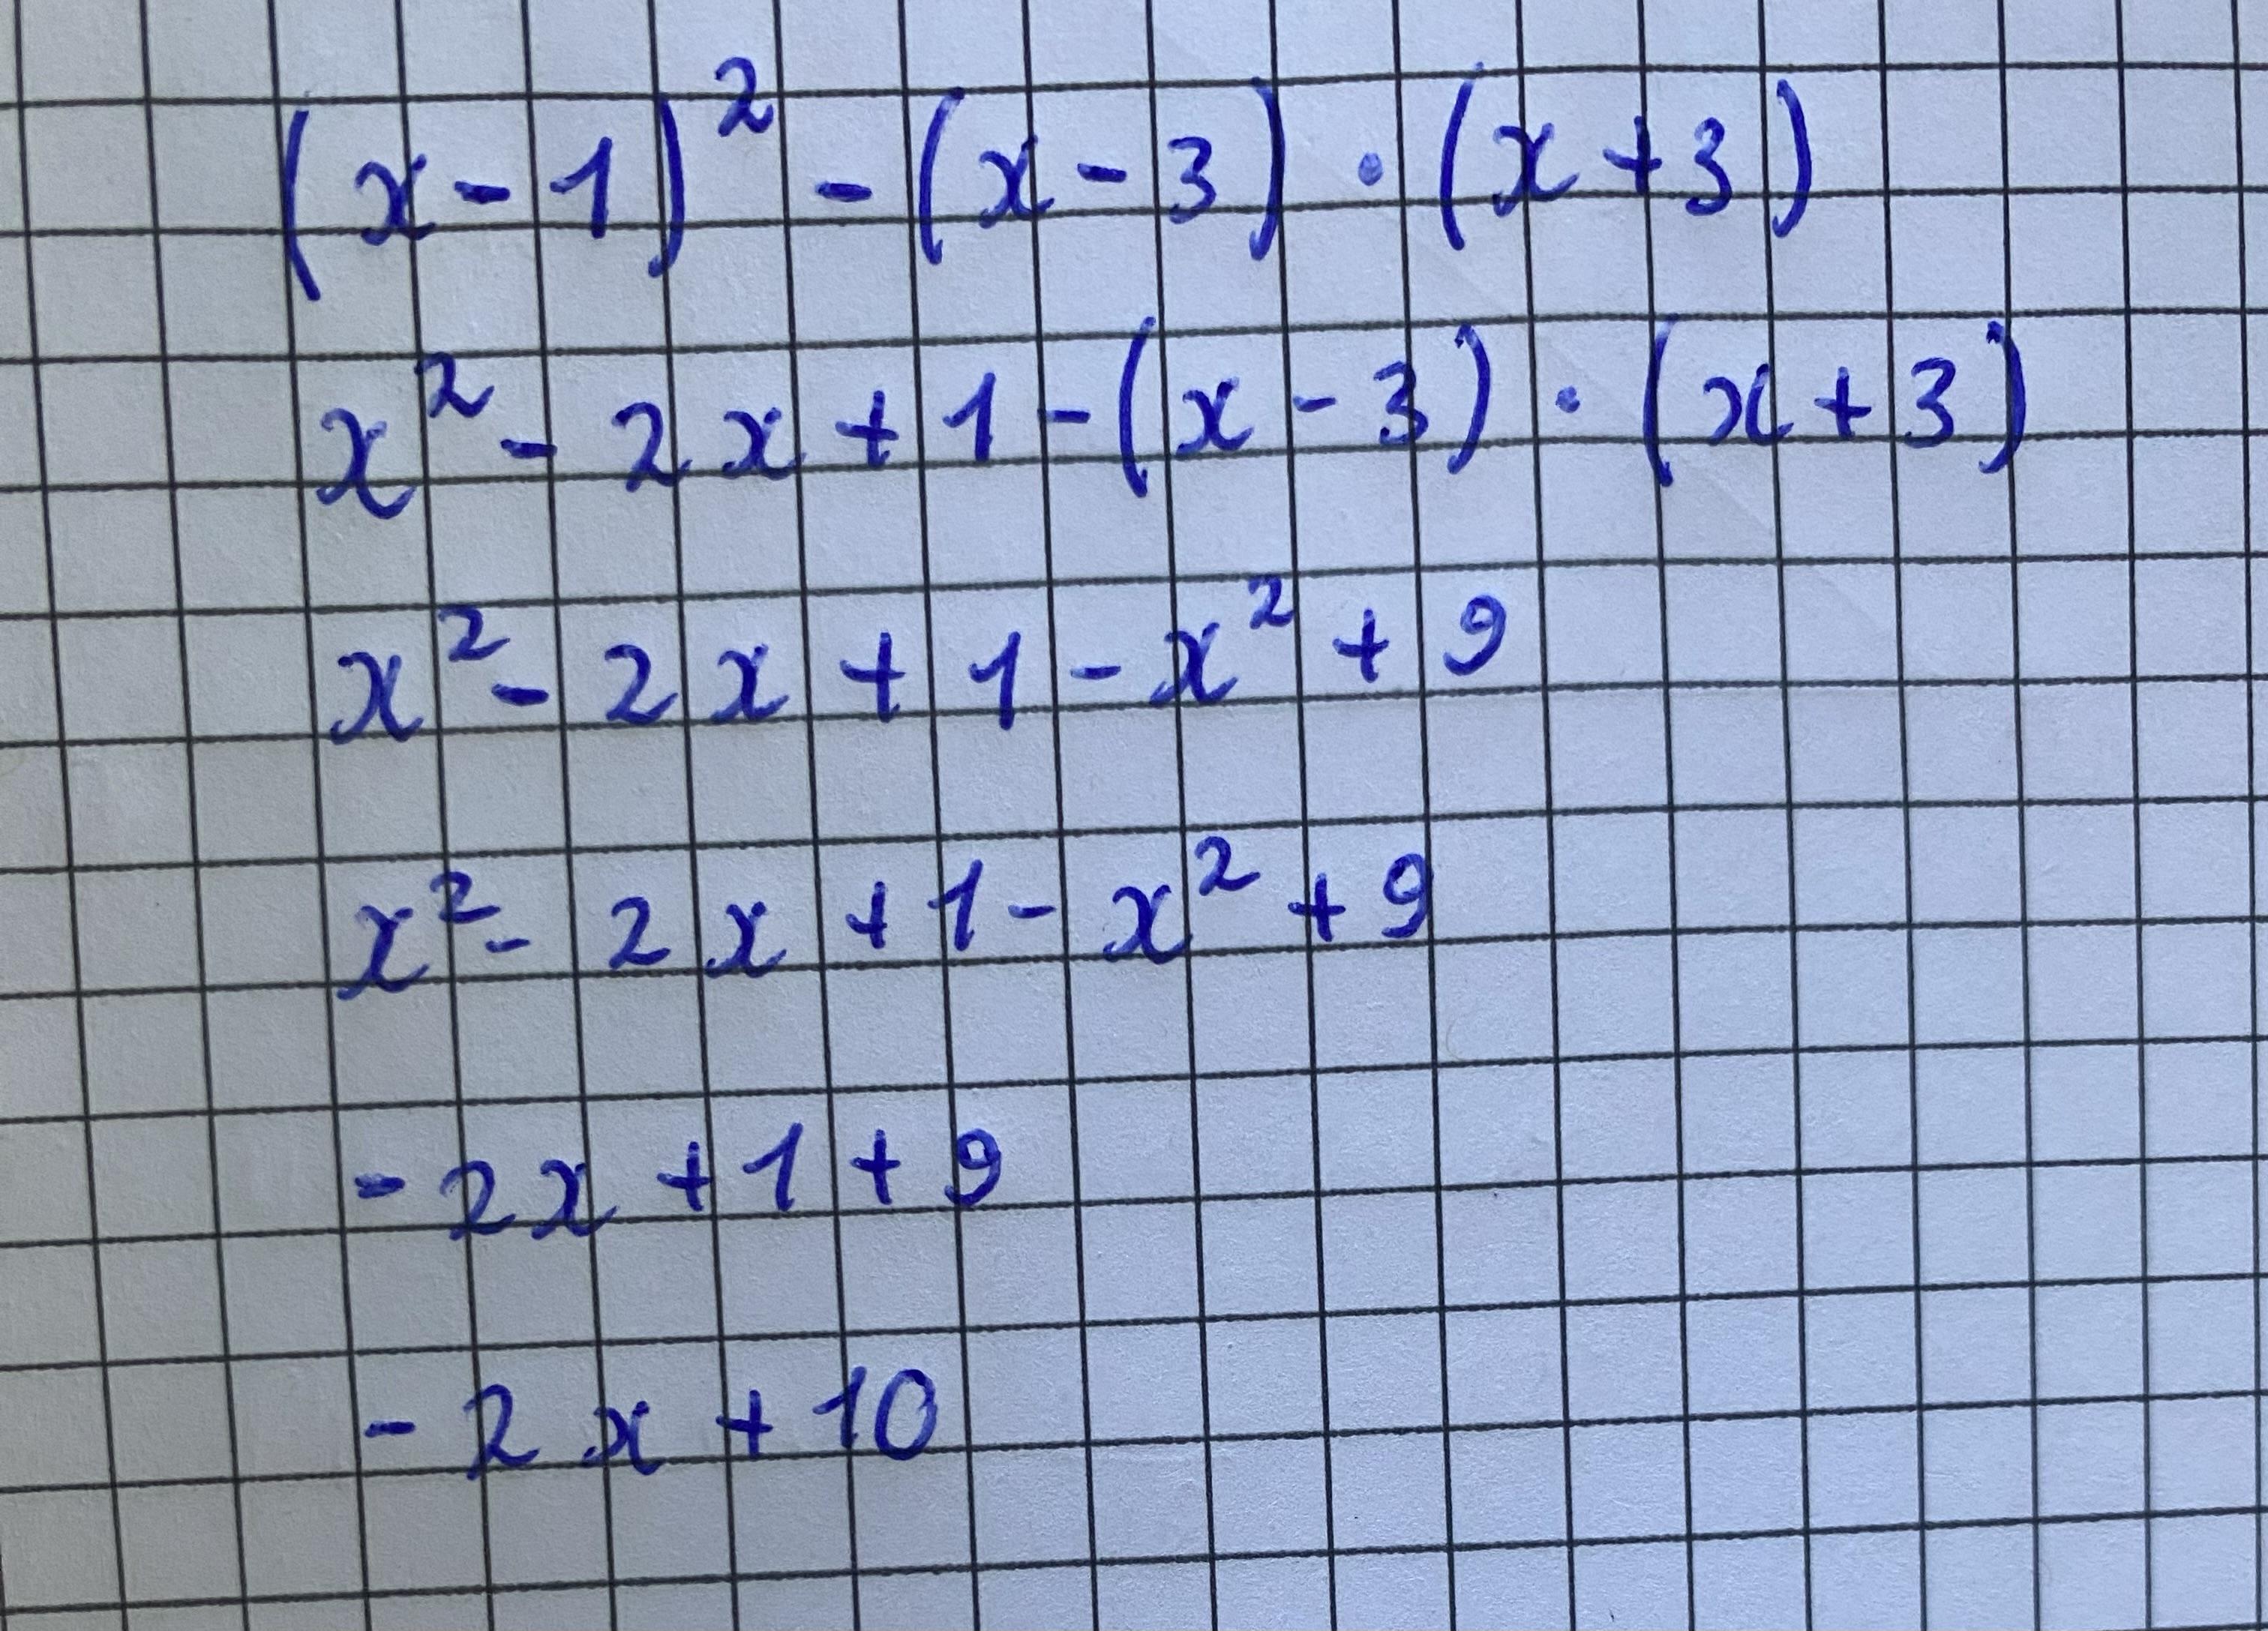 (x-1)² - (x-3) · (x+3)
x² - 2x + 1 - (x-3) · (x+3)
x² - 2x + 1 - x² + 9
x² - 2x + 1 - x² + 9
- 2x + 1 + 9
- 2x + 10